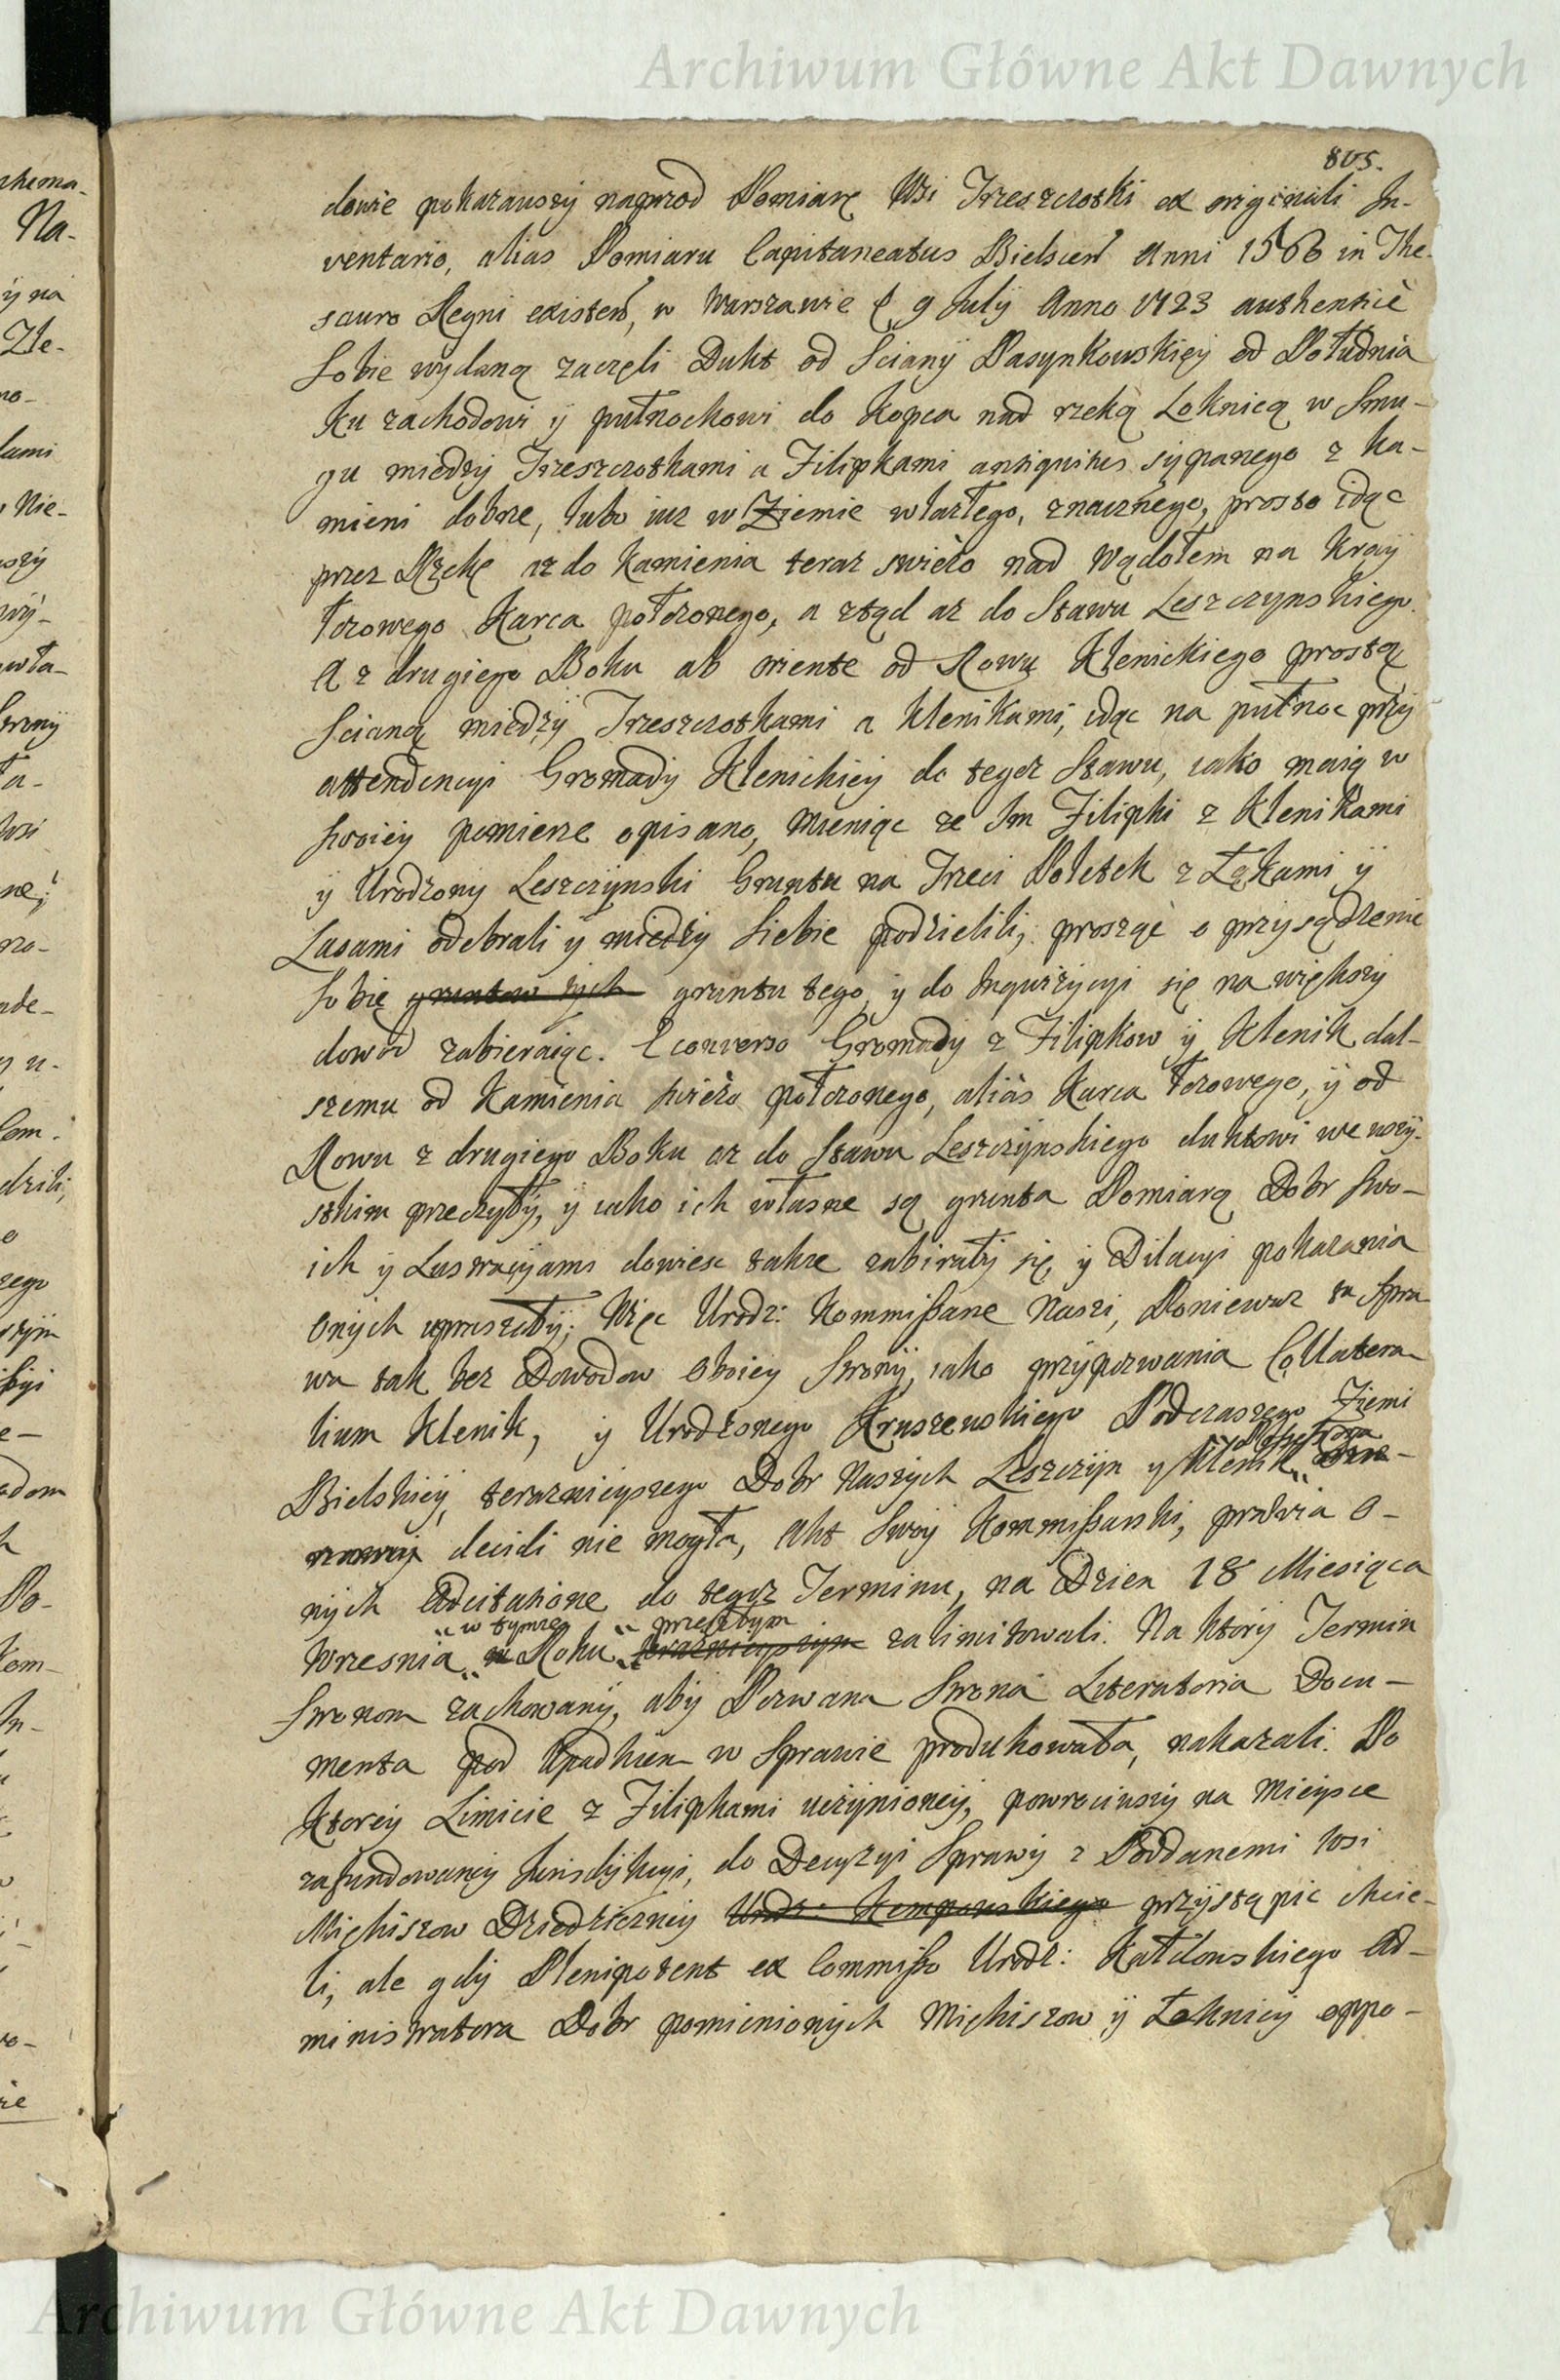 Archiwum Główne Akt Dawnych
805.
dowie pokazawszy naprzod Pomiarę Wsi Trzeszczotki ex originali In-
ventario, alias Pomiaru Capitaneatus Bielscen Anni 1560 in The-
sauro Regni existen, w Warszawie 9 July Anno 1723 authentice
Sobie wydaną zaczęli Dukt od Sciany Pasynkowskiey od Południa
Ku zachodowi y pułnockowi do Kopca nad rzeką Loknicą w Smu-
gu miedzy Trzeszczotkami a Filipkami antiquitus sypanego z ka-
mieni dobrze, lubo iuz w Ziemie wlazłego, znacznego, prosto idąc
przez Rzekę az do Kamienia teraz swiezo nad Wądołem na Kray
łozowego Karca położonego, a ztąd az do Stawu Leszczynskiego.
A z drugiego Boku ab oriente od Rowu Klenickiego prostą
Scianą miedzy Trzeszczotkami a Klenikami, idąc na pułnoc przy
attendencyi Gromady Klenickiey do tegoz Stawu, iako maią w
swoiey pomierze opisano, mieniąc ze Im Filipki z Klenikami
y Urodzony Leszczynski Gruntu na Trzeci Poletek z Łąkami y
Lasami odebrali y miedzy Siebie podzielili; prosząc o przysądzenie
Sobie gruntow tych gruntu tego, y do Inquizycyi się na większy
dowod zabieraiąc. E converso Gromady z Filipkow y Klenik dal-
szemu od Kamienia swiezo położonego, alias Karca łozowego, y od
Rowu z drugiego Boku az do Stawu Leszczynskiego duktowi we wszy-
stkim przeczyły, y iako ich własne są grunta Pomiarą Dobr Swo-
ich y Lustracyami dowiesc takze zabirały się, y Dilacyi pokazania
Onych upraszały; Więc Urodz: Kommissarze Nasi, Poniewaz ta Spra-
wa tak bez Dowodow Oboiey Strony, iako przypozwania Collatera-
lium Klenik, y Urodzonego Kruszewskiego Podczaszego Ziemi
Bielskiey, teraznieyszego Dobr Naszych Leszczyn y Klenik
decidi nie mogła, Akt Swoy Kommissarski, O-
nych Adcitatione do tegoz Terminu, na Dzien 18 Miesiąca
w tymze przeszłym
Wrzesnia w Roku teraznieyszym zalimitowali. Na ktory Termin
Stronom zachowany, aby Pozwana Strona Literatoria Docu-
menta pod Upadkiem w Sprawie produkowała, nakazali. Po
Ktorey Limicie z Filipkami uczynioney, powrociwszy na Mieysce
zafundowaney Iurisdykcyi, do Decyzyi Sprawy z Poddanemi Wsi
Michiszow Dziedziczney Urodz: Kempowskiego przystąpic chcie-
li, ale gdy Plenipotent ex Commisso Urodz: Ad-
ministratora Dobr pomienionych Michiszow y Łoknicy oppo-
Archiwum Główne Akt Dawnych